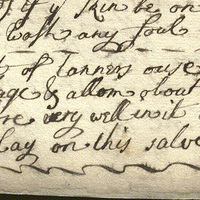 if yͤ skin be on
Wash any foul
ts of tanners ouse
age & allom about
re very well in it a
lay on this salve